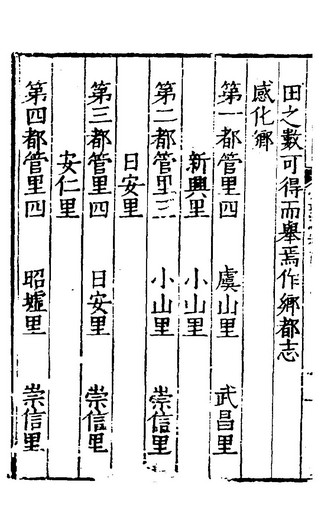 田之數可得而舉焉作鄉都志
感化鄉
第一都管里四　虞山里　武昌里
新興里　小山里
第二都管里三　小山里　崇信里
日安里
第三都管里四　日安里　崇信里
安仁里
第四都管里四　昭墟里　崇信里